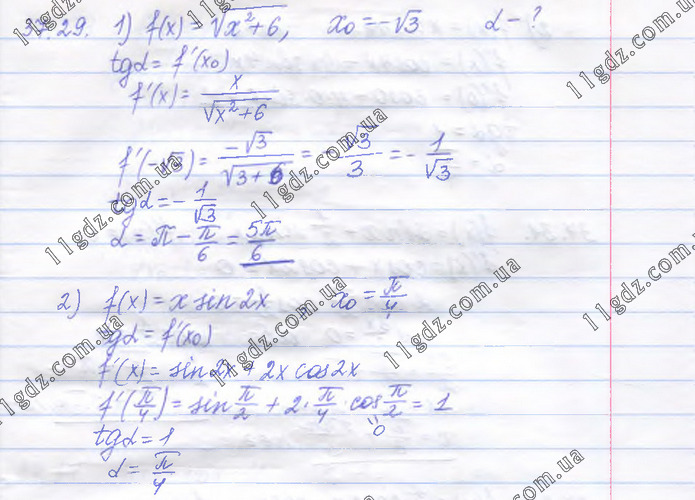 37.29. 1) f(x) = √(x²+6), x₀ = -√3 α - ?
tgα = f'(x₀)
f'(x) = x/√(x²+6)
f'(-√3) = -√3/√(3+6) = -√3/3 = -1/√3
tgα = -1/√3
α = π - π/6 = 5π/6
2) f(x) = x sin 2x, x₀ = π/4
tgα = f'(x₀)
f'(x) = sin 2x + 2x cos 2x
f'(π/4) = sin π/2 + 2·π/4·cos π/2 = 1
0
tgα = 1
α = π/4
11gdz.com.ua
11gdz.com.ua
11gdz.com.ua
11gdz.com.ua
11gdz.com.ua
11gdz.com.ua
11gdz.com.ua
11gdz.com.ua